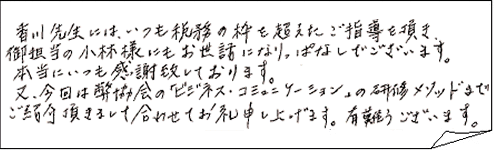 香川先生には、いつも税務の枠を超えたご指導を頂き、
御担当の小林様にもお世話になりっぱなしでございます。
本当にいつも感謝致しております。
又、今回は弊協会の「ビジネス・コミュニケーション」の研修メソッドまで
ご紹介頂きまして合わせてお礼申し上げます。有難うございます。